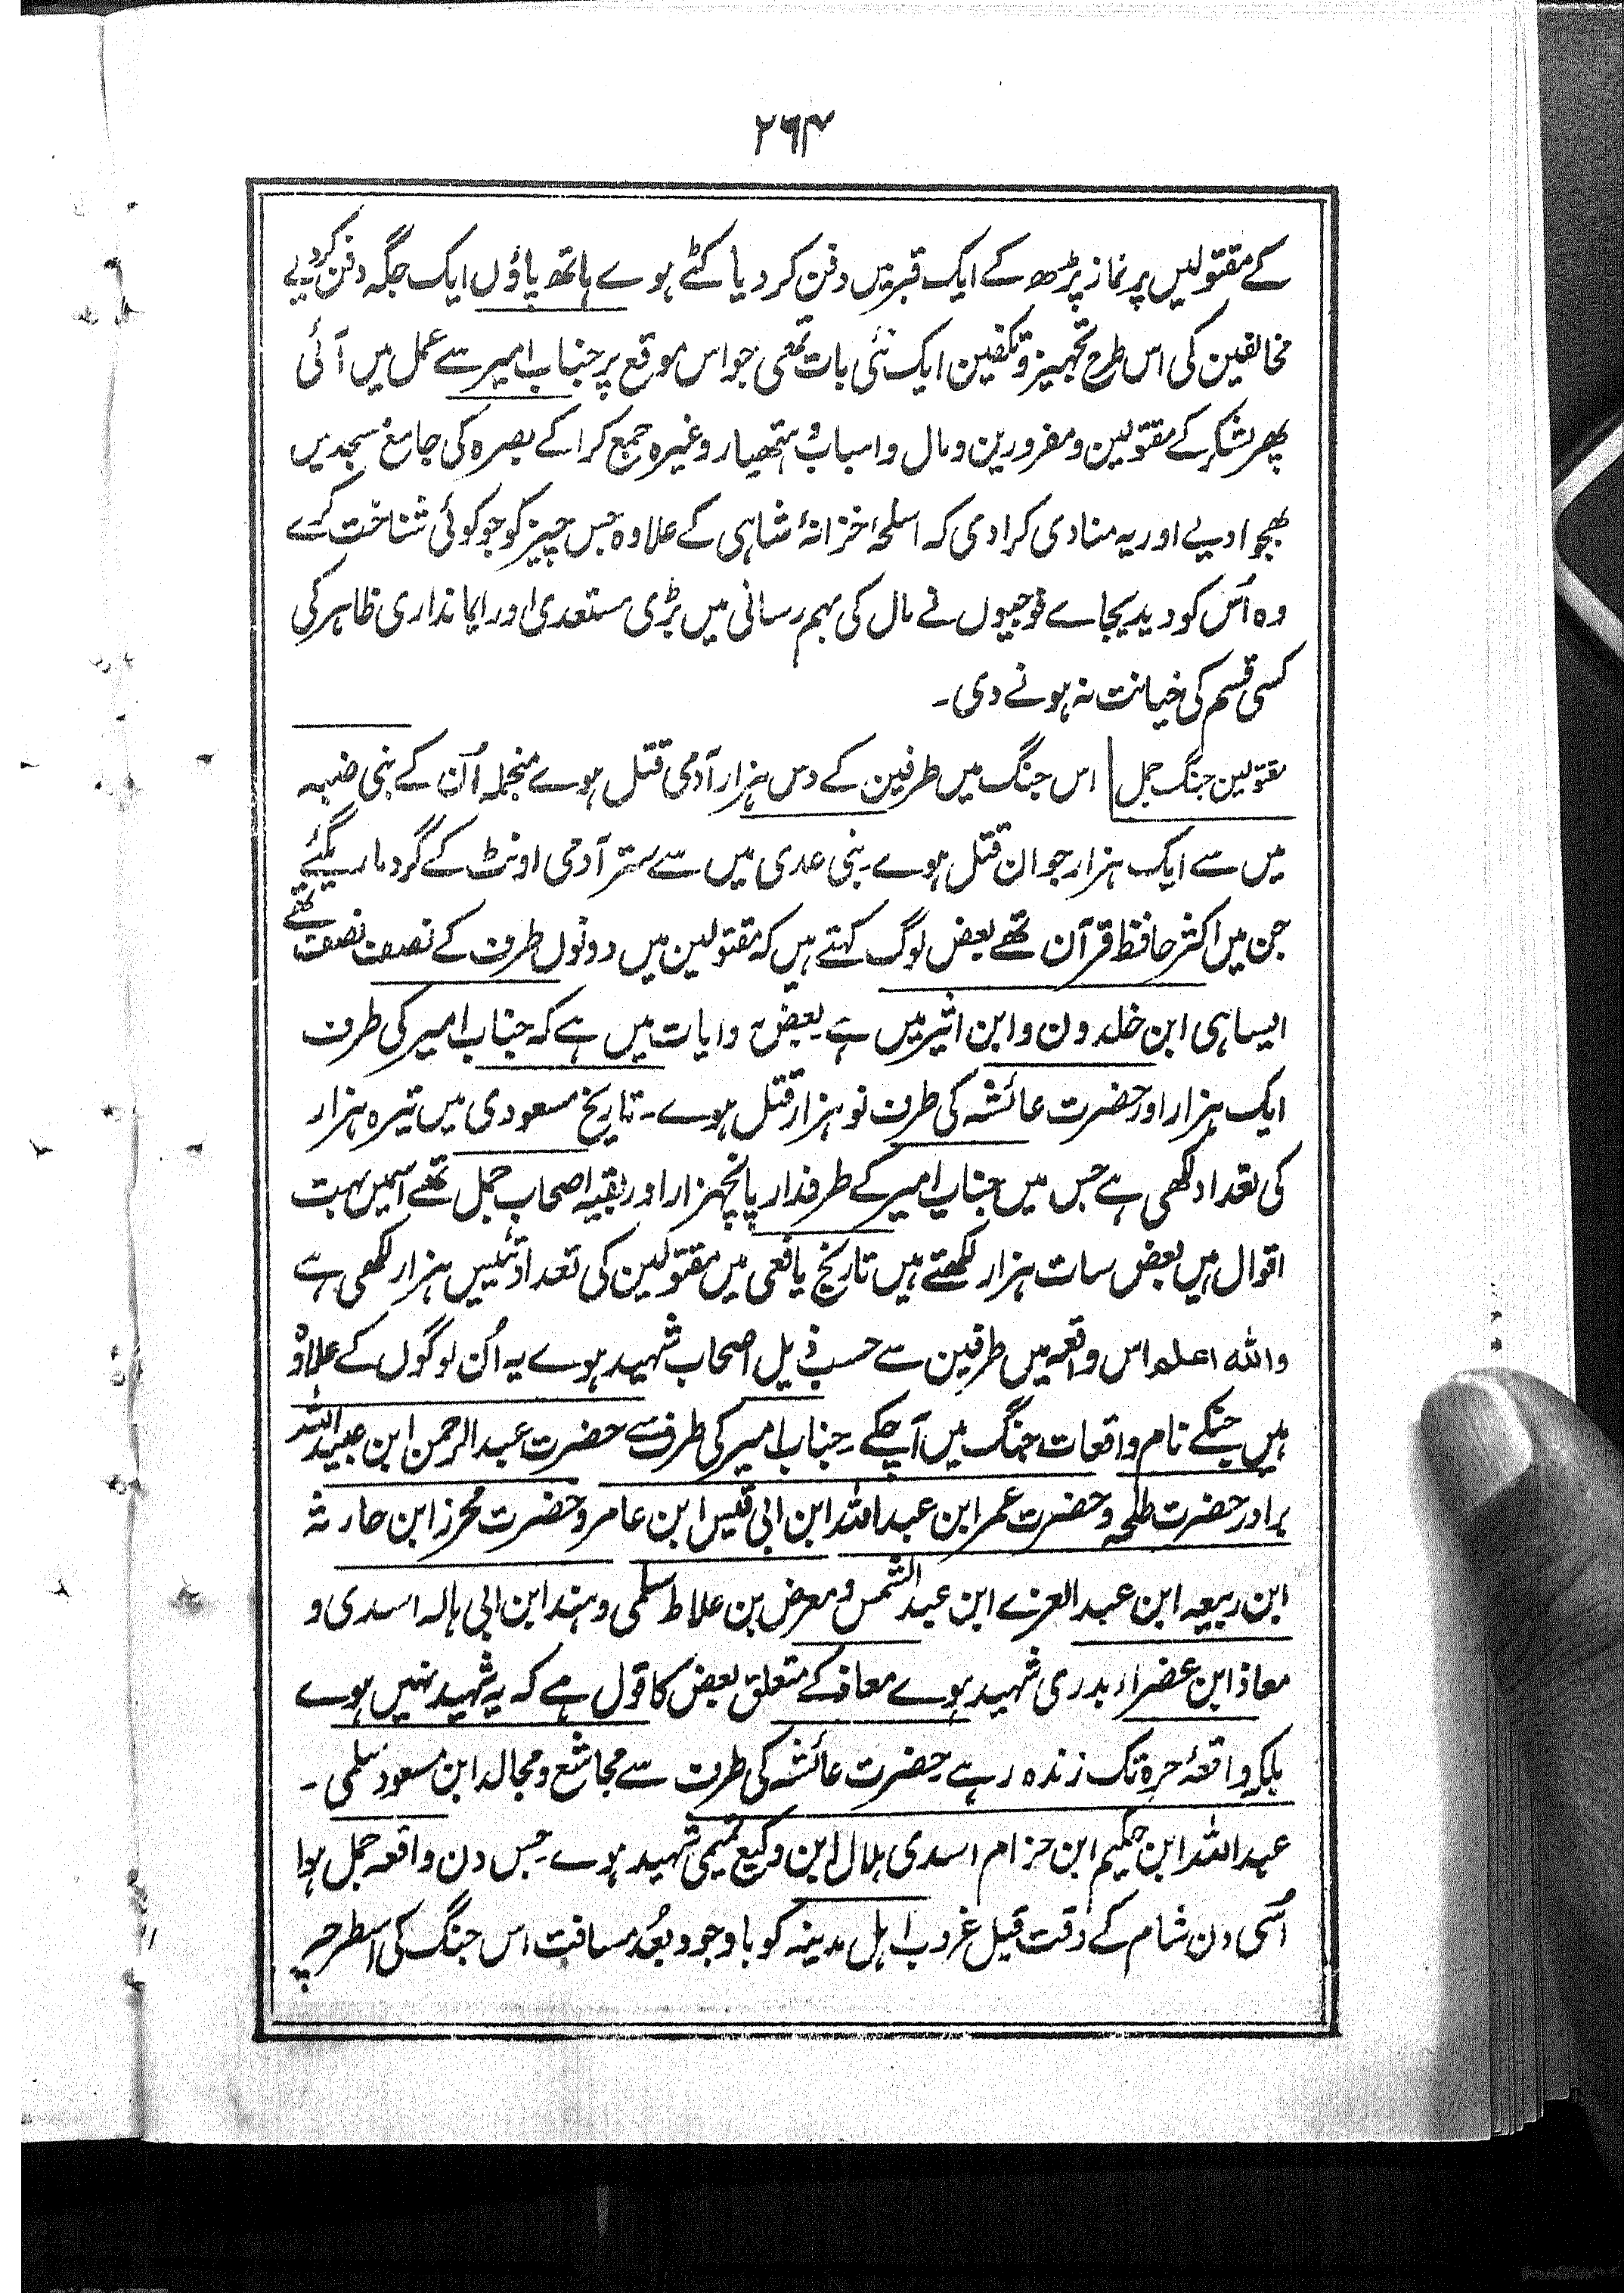 ۲۶۴
کے مقتولیں پر نماز پڑھ کے ایک قبر میں دفن کر دیا کٹے ہوے ہاتھ پاؤں ایک جگہ دفن کر دیے
مخالفین کی اس طرح تجہیز و تکفین ایک نئی بات تھی جو اس موقع پر جناب امیر سے عمل میں آئی
پھر لشکر کے مقتولین و مفرورین و مال و اسباب و ہتھیار وغیرہ جمع کرا کے بصرہ کی جامع مسجد میں
بھجوا دیے اور یہ منادی کرا دی کہ اسلحۂ خزانۂ شاہی کے علاوہ جس چیز کو جو کوئی شناخت کرے
وہ اُس کو دیدیجاے فوجیوں نے مال کی بہم رسانی میں بڑی مستعدی اور ایمانداری ظاہر کی
کسی قسم کی خیانت نہ ہونے دی۔
مقتولین جنگ جمل اس جنگ میں طرفین کے دس ہزار آدمی قتل ہوے منجملہ اُن کے بنی ضبہ
میں سے ایک ہزار جوان قتل ہوے۔ بنی عدی میں سے ستر آدمی اونٹ کے گرد مارے گئے
جن میں اکثر حافظ قرآن تھے بعض لوگ کہتے ہیں کہ مقتولین میں دونوں طرف کے نصف نصف تھے
ایسا ہی ابن خلدون و ابن اثیر میں ہے۔ بعض روایات میں ہے کہ جناب امیر کی طرف
ایک ہزار اور حضرت عائشہ کی طرف نو ہزار قتل ہوے۔ تاریخ مسعودی میں تیرہ ہزار
کی تعداد لکھی ہے جس میں جناب امیر کے طرفدار پانچہزار اور بقیہ اصحاب جمل تھے اسمیں بہت
اقوال ہیں بعض سات ہزار لکھتے ہیں تاریخ یافعی میں مقتولین کی تعداد تئیس ہزار لکھی ہے
واللہ اعلم اس واقعہ میں طرفین سے حسب ذیل اصحاب شہید ہوے یہ اُن لوگوں کے علاوہ
ہیں جنکے نام واقعات جنگ میں آچکے۔ جناب امیر کی طرف سے حضرت عبدالرحمن ابن عبید اللہ
برادر حضرت طلحہ و حضرت عمر ابن عبداللہ ابن ابی قیس ابن عامر و حضرت محرز ابن حارثہ
ابن ربیعہ ابن عبد العزے ابن عبد الشمس و معرض بن علاط سلمی و ہند ابن ابی ہالہ اسدی و
معاذ ابن عفراء بدری شہید ہوے معاذ کے متعلق بعض کا قول ہے کہ یہ شہید نہیں ہوے
بلکہ واقعۂ حرہ تک زندہ رہے۔ حضرت عائشہ کی طرف سے مجاشع و مجالد ابن مسعود سلمی۔
عبداللہ ابن حکیم ابن حزام اسدی ہلال ابن وکیع تمیمی شہید ہوے۔ جس دن واقعہ جمل ہوا
اُسی دن شام کے وقت قبل غروب اہل مدینہ کو باوجود بُعد مسافت اس جنگ کی اسطرحپر